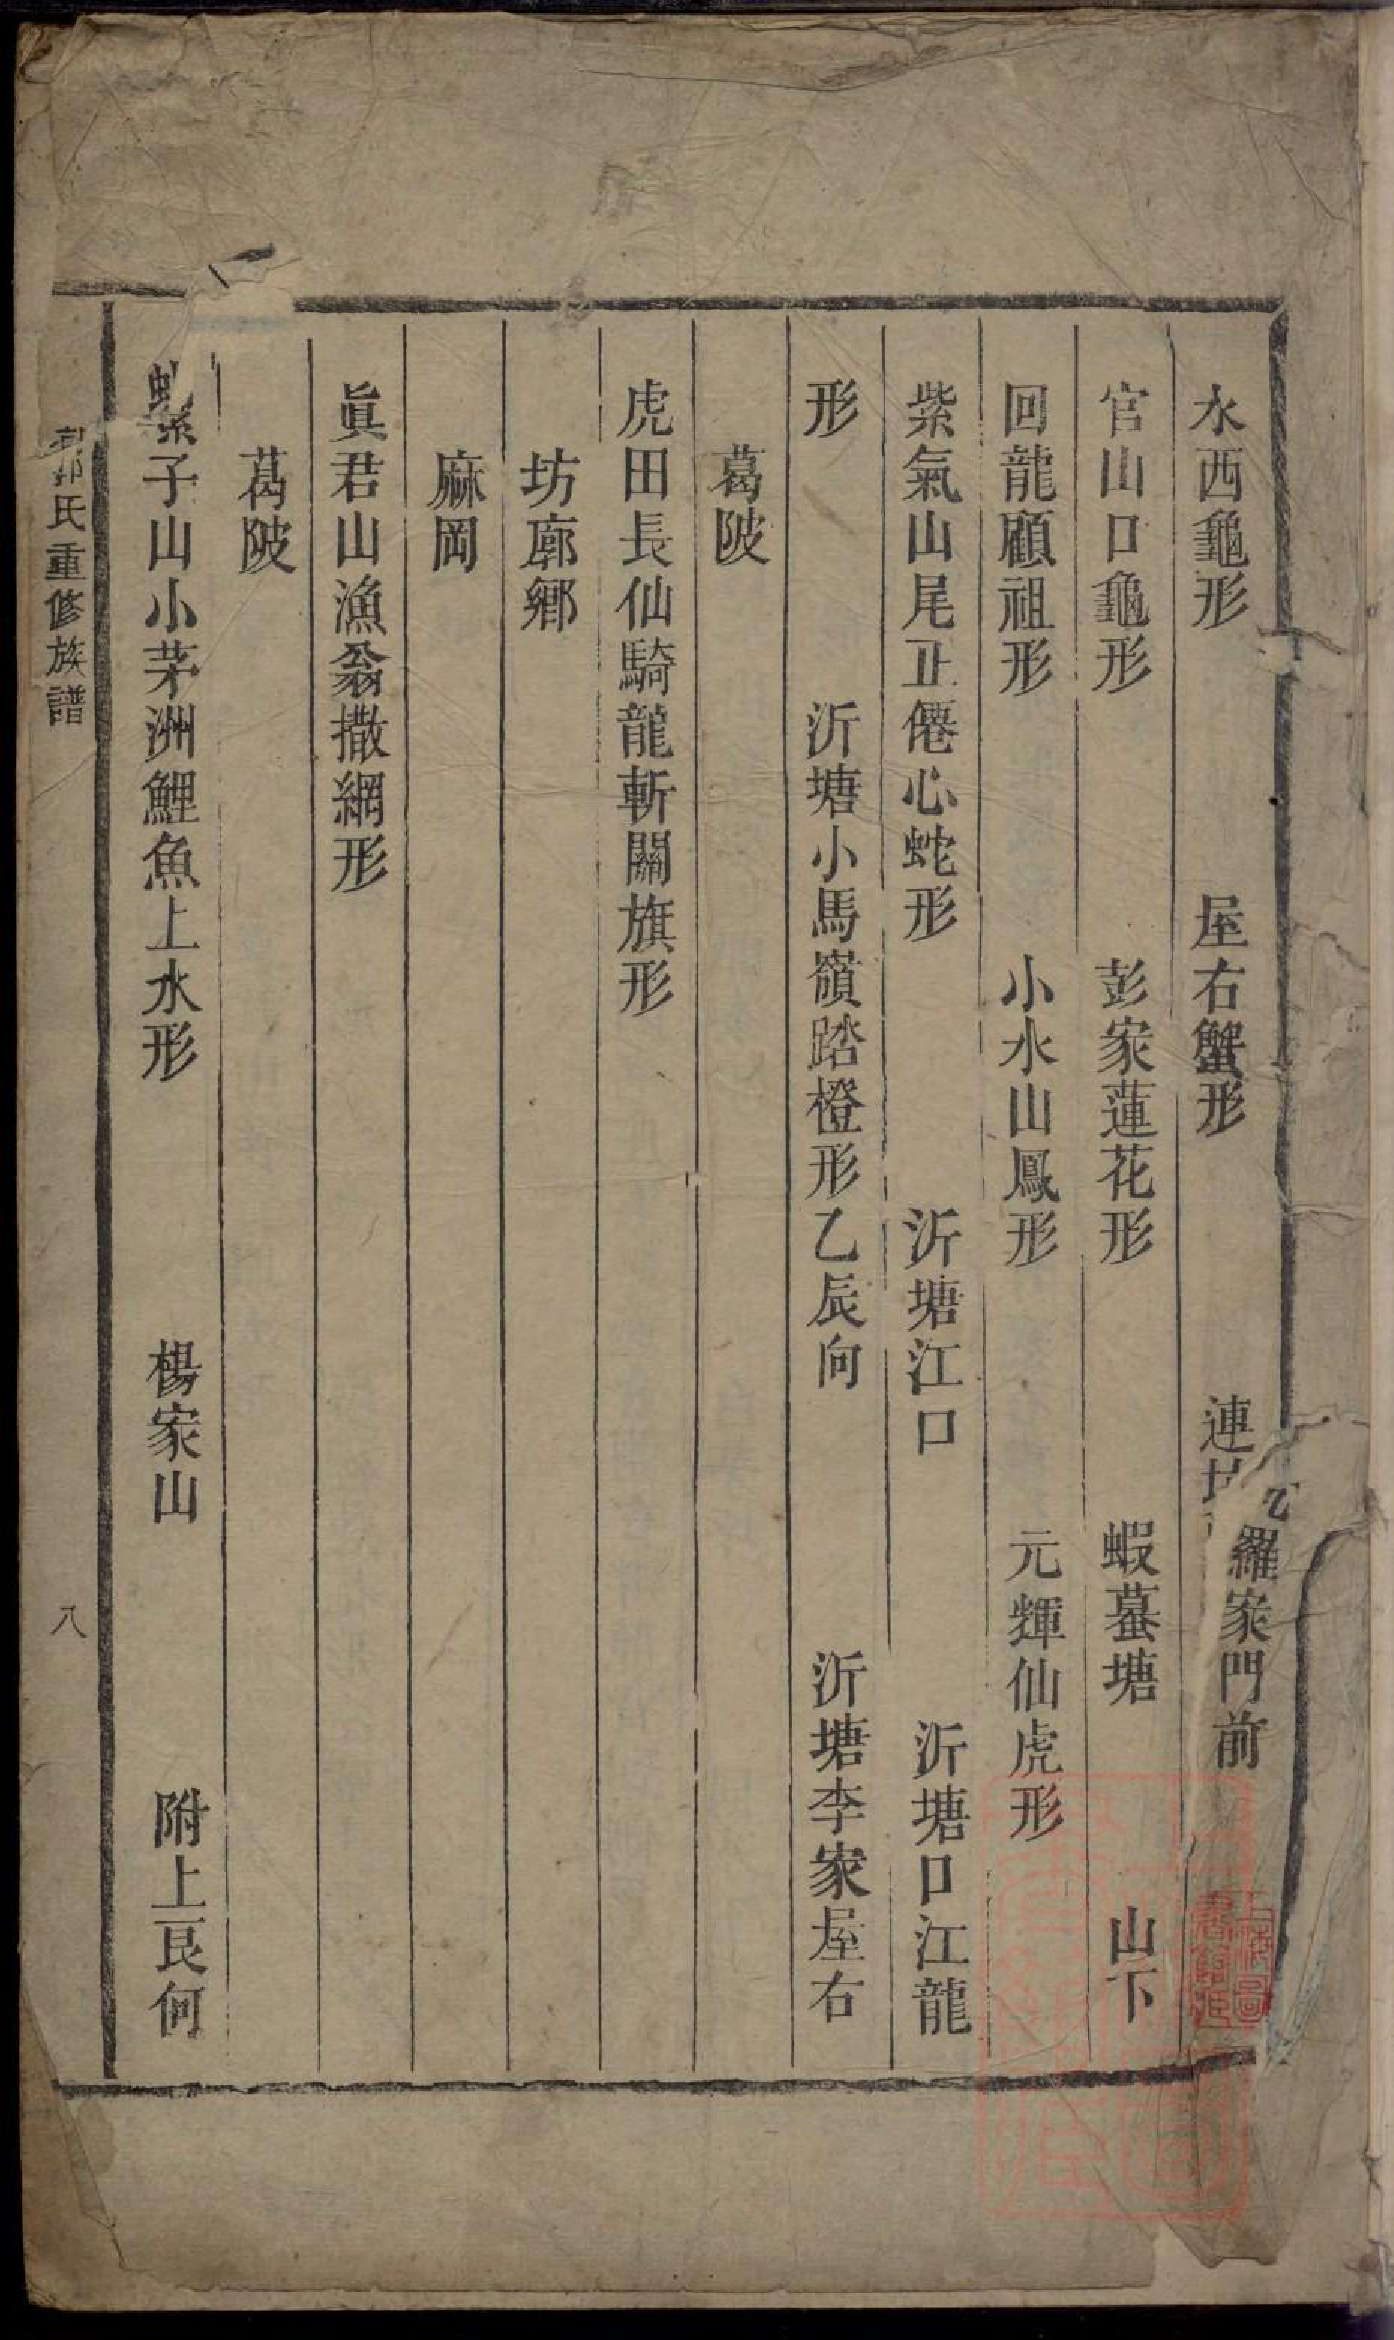 水西龜形　屋右蟹形　連　羅家門前
官山口龜形　彭家蓮花形　蝦蟇塘　山下
回龍顧祖形　小水山鳳形　元輝仙虎形
紫氣山尾正僊心蛇形　沂塘江口　沂塘口江龍
形　沂塘小馬嶺踏橙形乙辰向　沂塘李家屋右
葛陂
虎田長仙騎龍斬關旗形
坊廓鄉
麻岡
眞君山漁翁撒網形
葛陂
螺子山小茅洲鯉魚上水形　楊家山　附上艮何
氏重修族譜　八